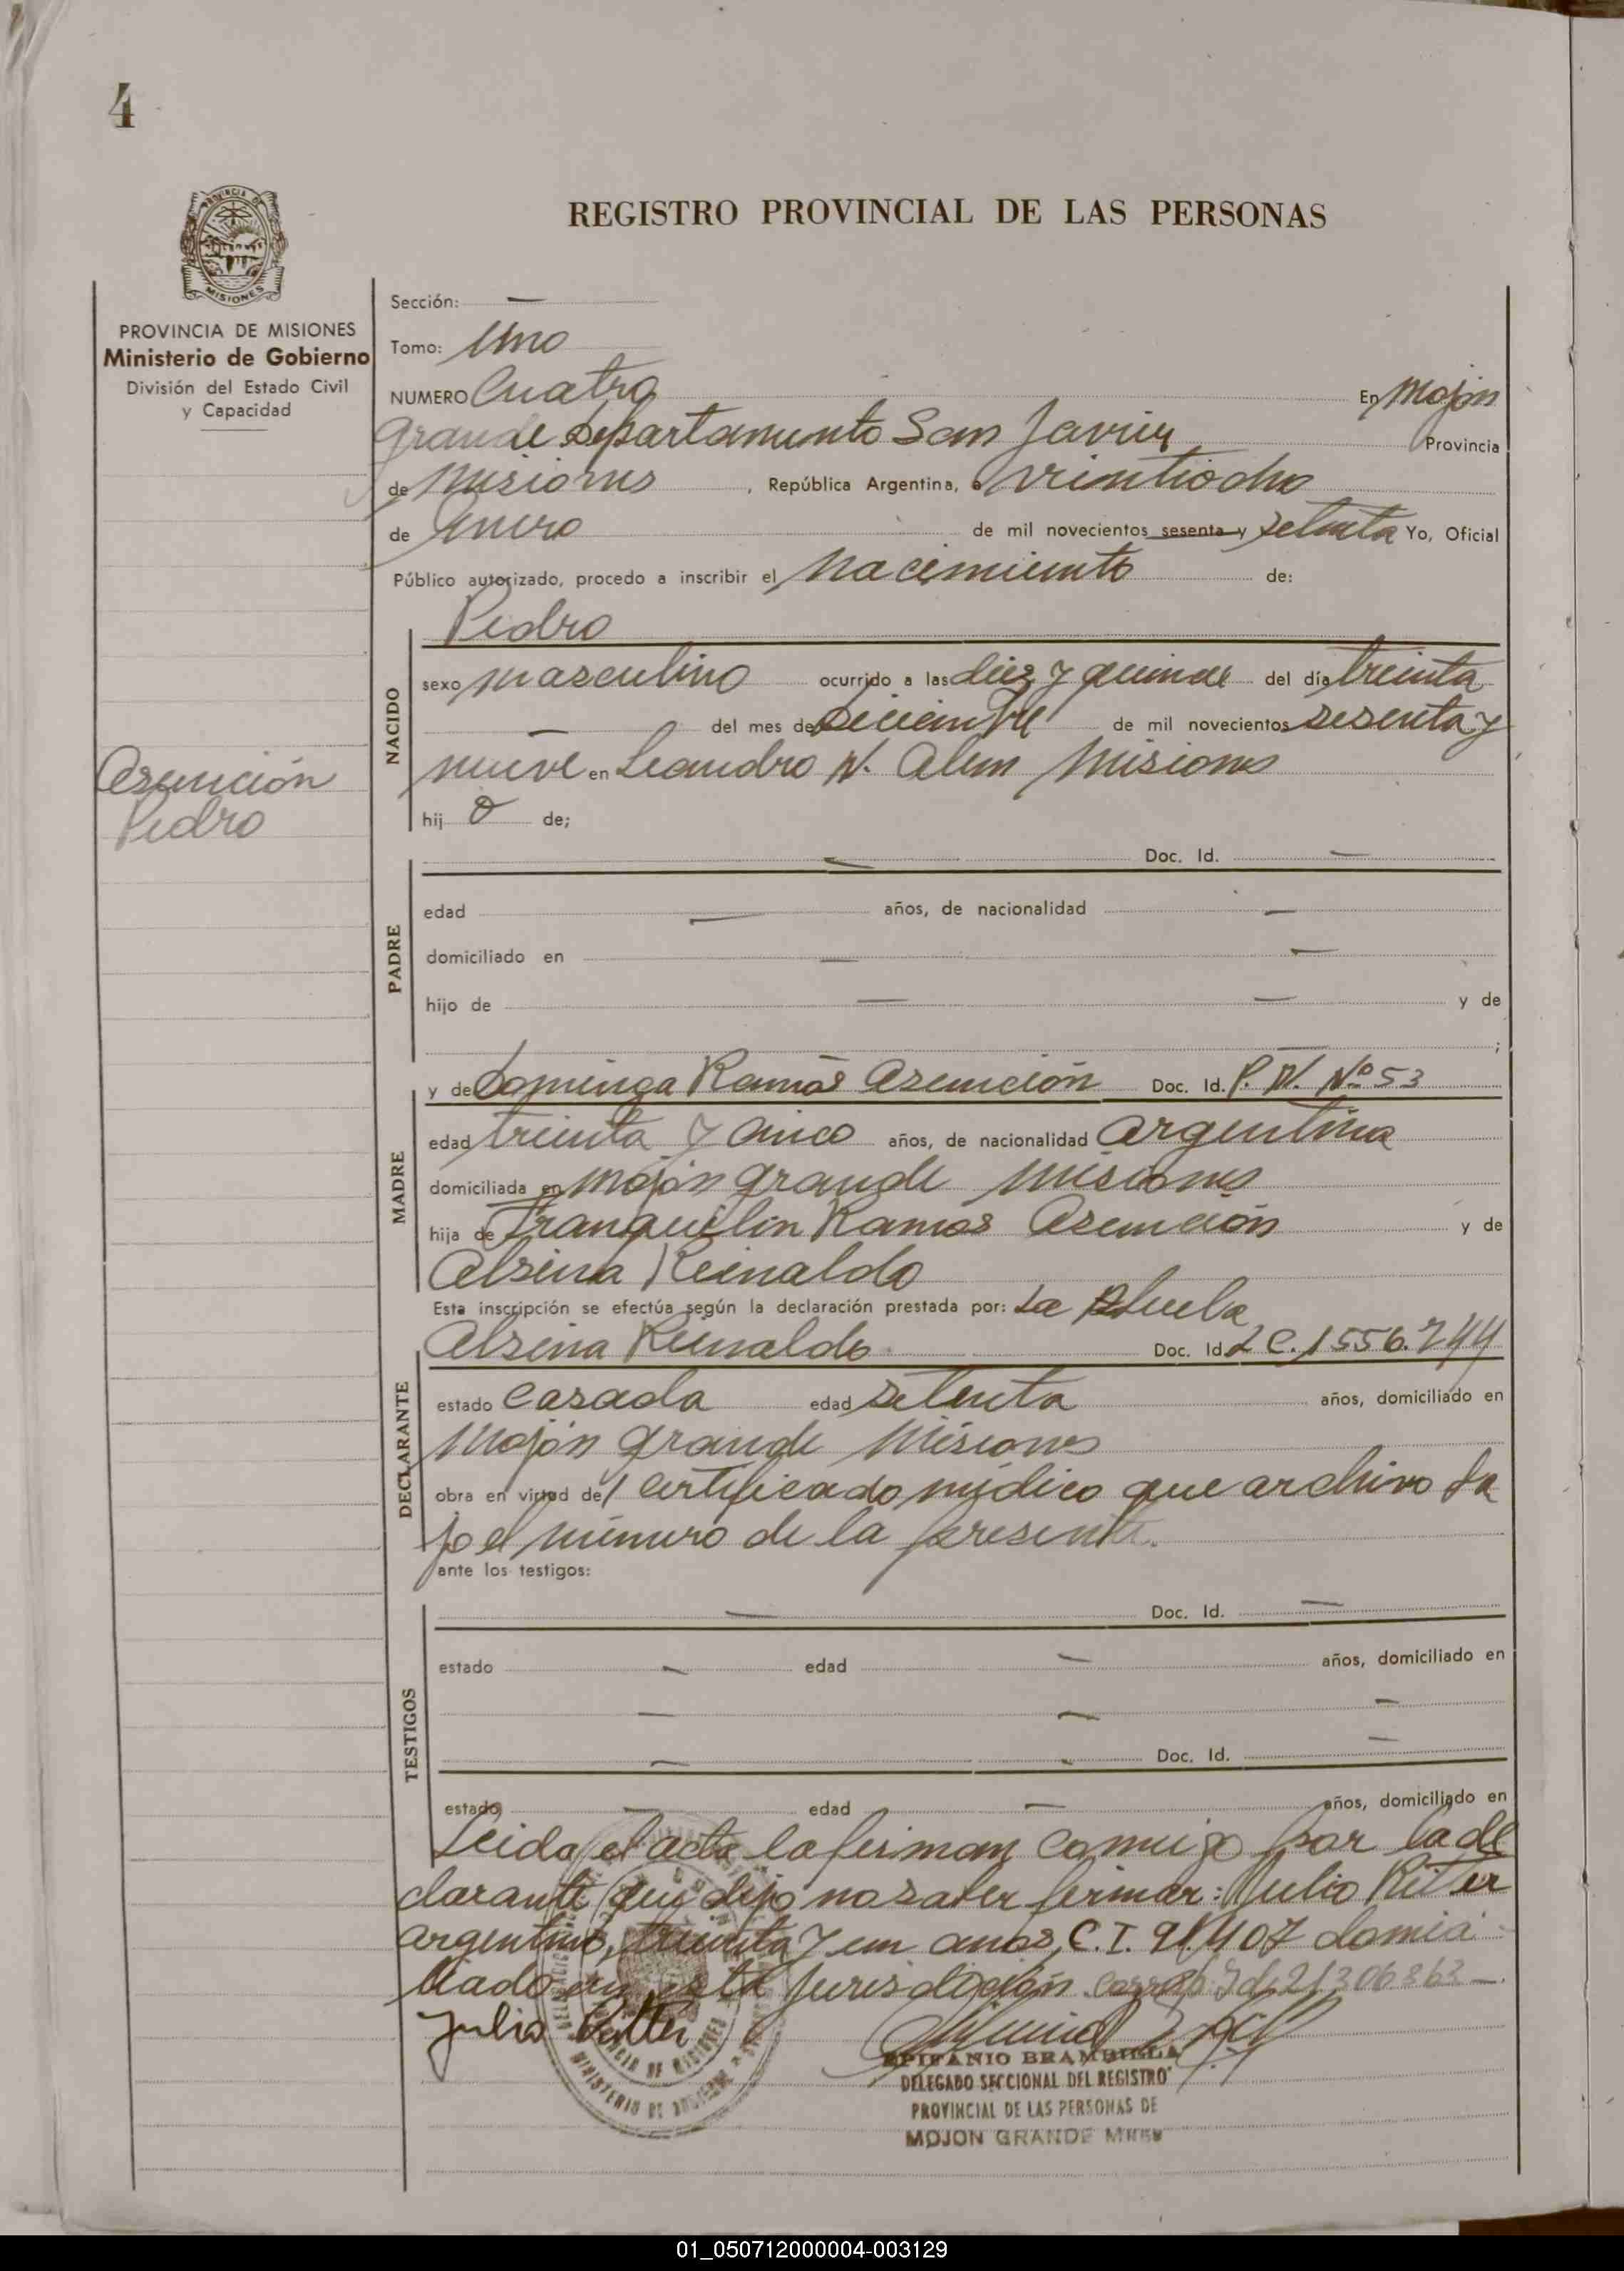 4
PROVINCIA DE
MISIONES
REGISTRO PROVINCIAL DE LAS PERSONAS
PROVINCIA DE MISIONES
Ministerio de Gobierno
División del Estado Civil
y Capacidad
Sección: —
Tomo: Uno
NUMERO Cuatro En Mojon
Grande Departamento San Javier Provincia
de Misiones, República Argentina, a veintiocho
de Enero de mil novecientos sesenta y setenta Yo, Oficial
Público autorizado, procedo a inscribir el Nacimiento de:
Pedro
NACIDO
sexo masculino ocurrido a las diez y quince del día treinta
— del mes de Diciembre de mil novecientos sesenta y
nueve en Leandro N. Alem Misiones
hij o de;
Asunción
Pedro
PADRE
— Doc. Id. —
edad — años, de nacionalidad —
domiciliado en — —
hijo de — — y de
— ;
MADRE
y de Dominga Ramos Asunción Doc. Id. P. N. Nº 53
edad treinta y cinco años, de nacionalidad Argentina
domiciliada en Mojón Grande Misiones
hija de Tranquilin Ramos Asunción y de
Alsina Reinaldo
Esta inscripción se efectúa según la declaración prestada por: La Abuela
DECLARANTE
Alsina Reinaldo Doc. Id. L C. 1556.744
estado Casada edad setenta años, domiciliado en
Mojón Grande Misiones
obra en virtud del certificado médico que archivo ba
jo el número de la presente.
ante los testigos:
TESTIGOS
— Doc. Id. —
estado — edad — años, domiciliado en
— — —
— — Doc. Id. —
estado — edad — años, domiciliado en
Leida el acta la firman comigo por la de
clarante que dijo no saber firmar: Julio Ritter
argentino, treinta y un anos, C.I. 91.407 domici
liado en esta jurisdicción. 21306363 —.
Julio Ritter
EPIFANIO BRAMBILLA
DELEGADO SECCIONAL DEL REGISTRO
PROVINCIAL DE LAS PERSONAS DE
MOJON GRANDE
MINISTERIO DE GOBIERNO
01_050712000004-003129